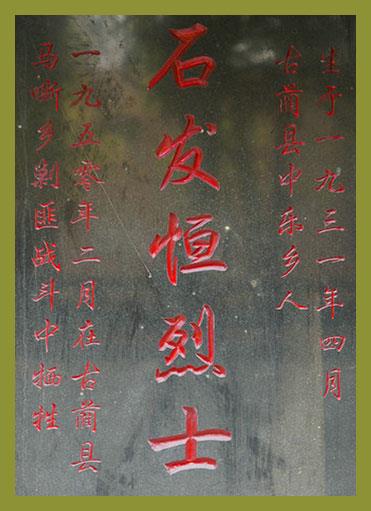 生于一九三一年四月
古蔺县中乐乡人
石发恒烈士
一九五零年二月在古蔺县
马嘶乡剿匪战斗中牺牲